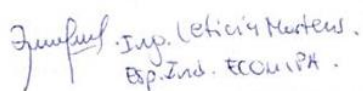 Ing. Leticia Martens.
Esp. Ind. ECOMIPA.